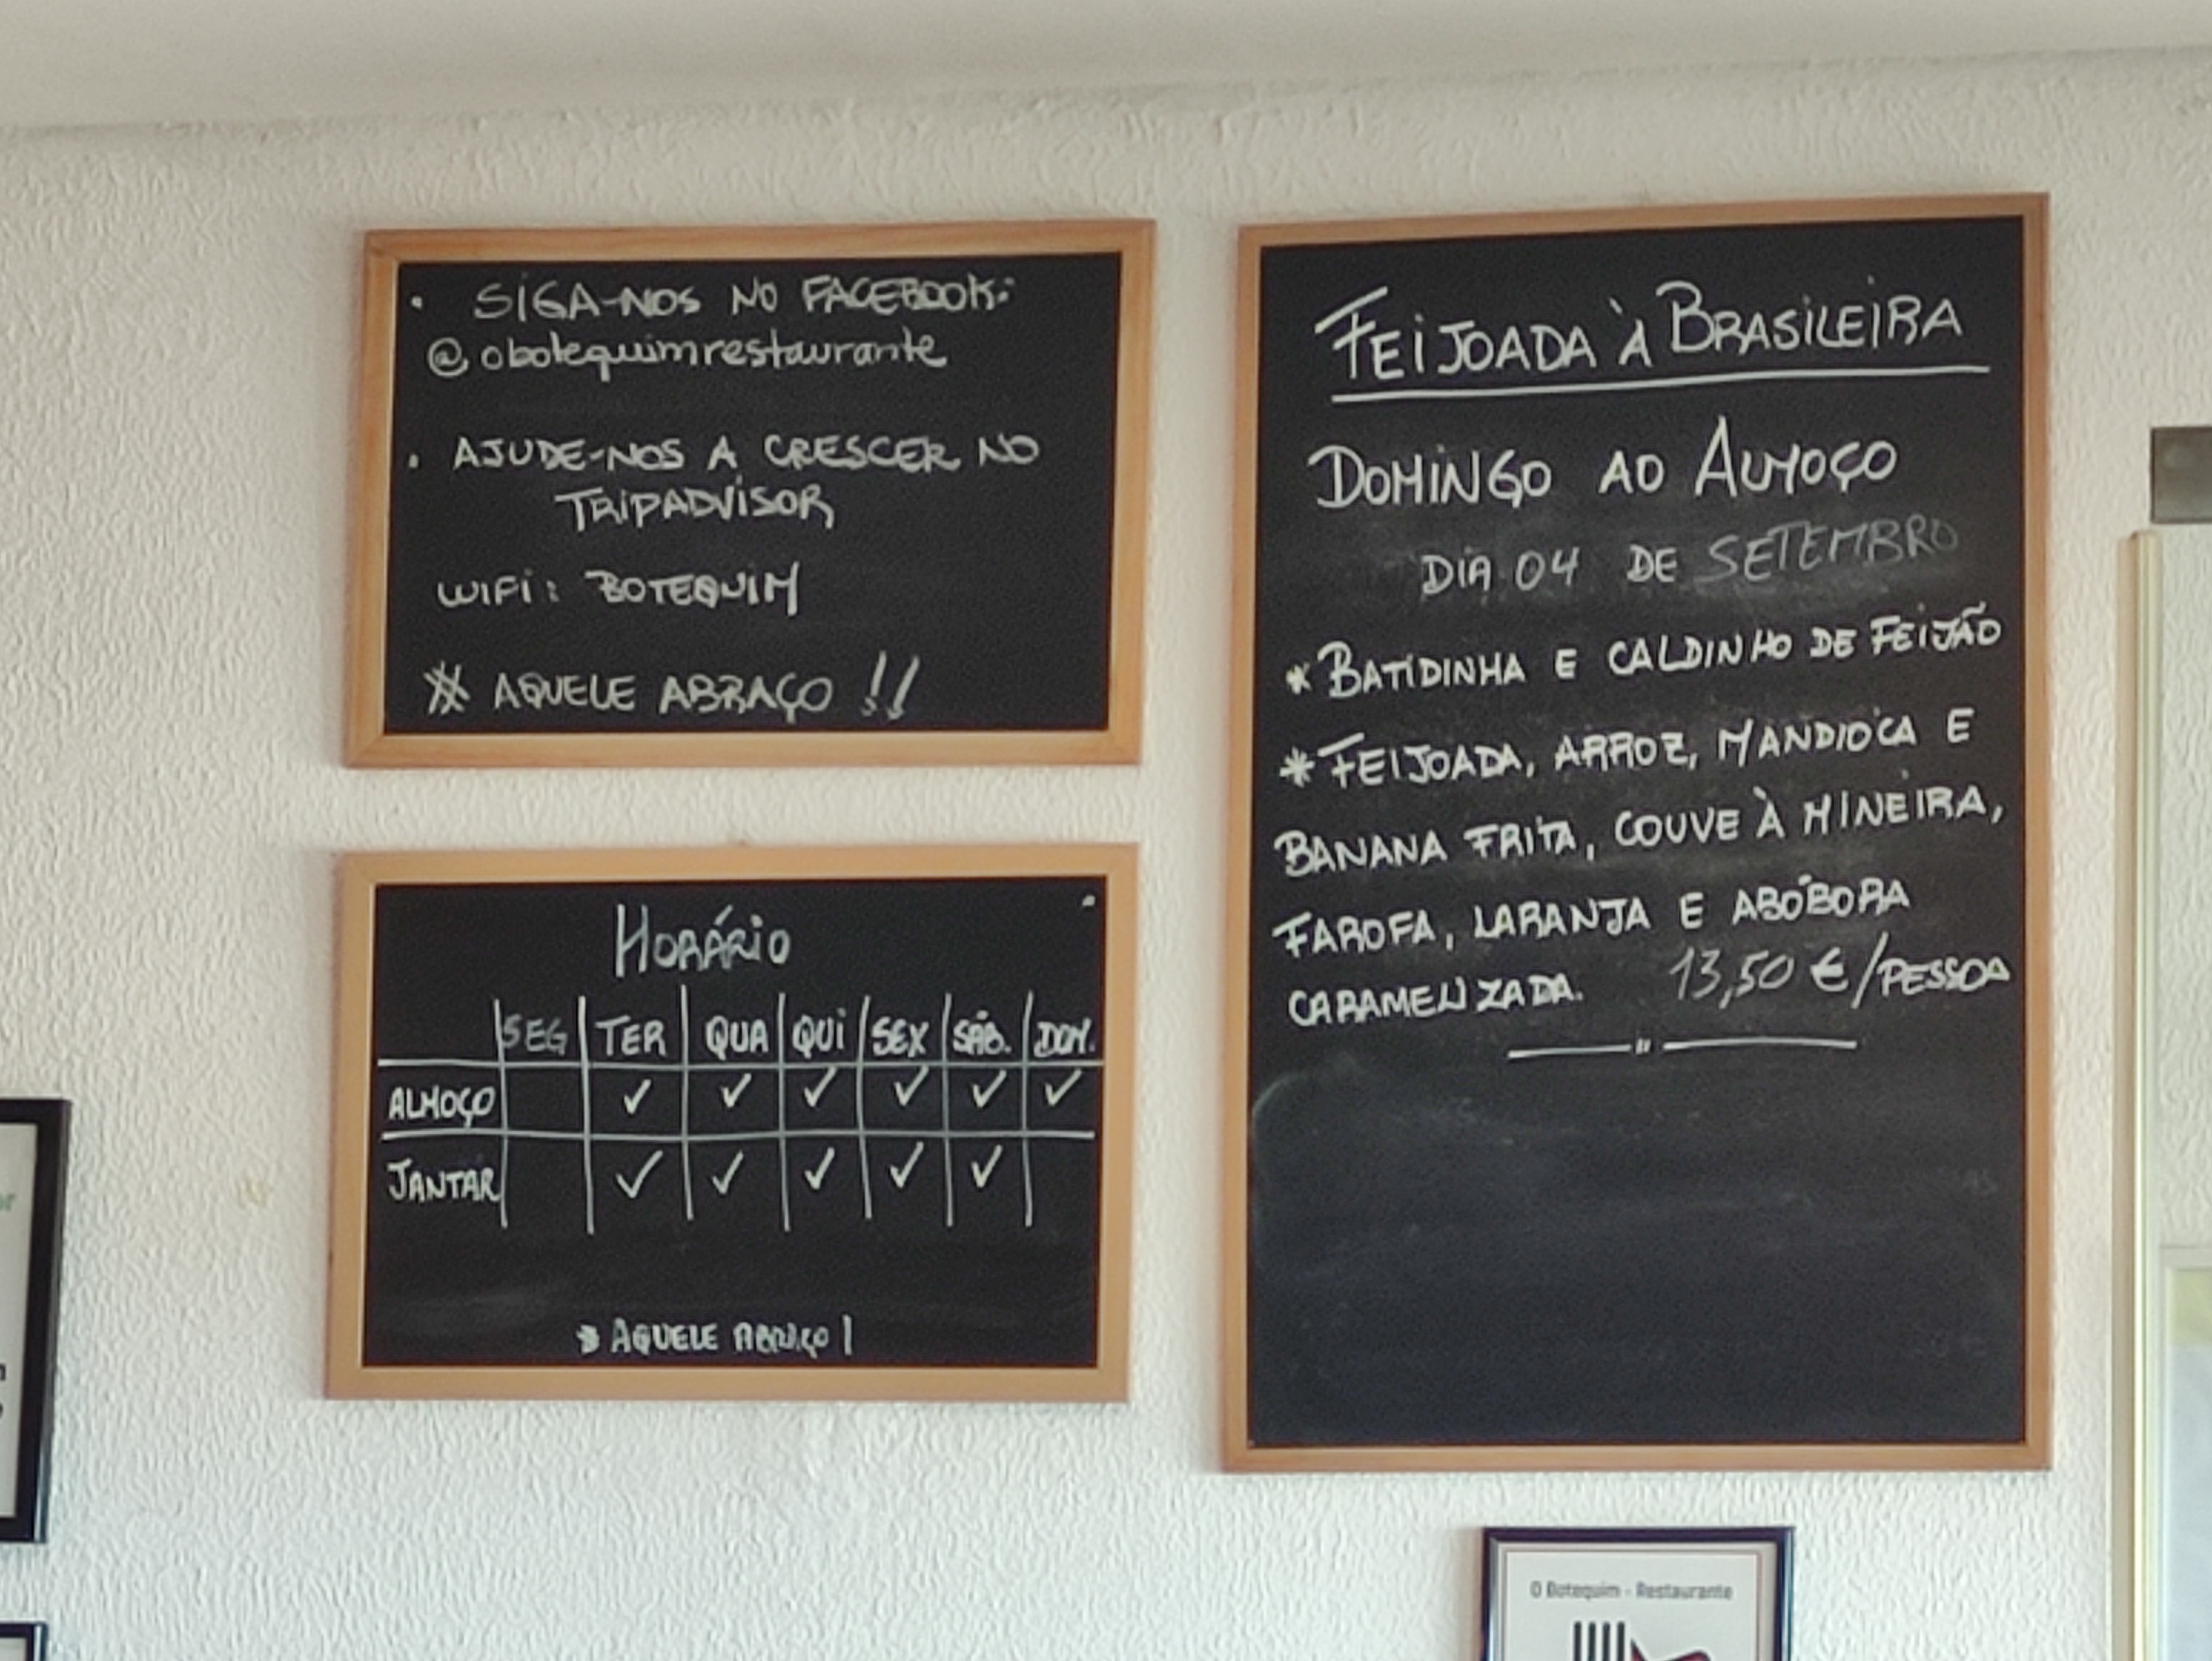 • SIGA-NOS NO FACEBOOK:
@obotequimrestaurante
• AJUDE-NOS A CRESCER NO
TRIPADVISOR
WIFI: BOTEQUIM
* AQUELE ABRAÇO !!
HORÁRIO
SEG TER QUA QUI SEX SÁB. DOM.
ALMOÇO ✓ ✓ ✓ ✓ ✓ ✓
JANTAR ✓ ✓ ✓ ✓ ✓
* AQUELE ABRAÇO !
FEIJOADA À BRASILEIRA
DOMINGO AO ALMOÇO
DIA 04 DE SETEMBRO
* BATIDINHA E CALDINHO DE FEIJÃO
* FEIJOADA, ARROZ, MANDIOCA E
BANANA FRITA, COUVE À MINEIRA,
FAROFA, LARANJA E ABÓBORA
CARAMELIZADA. 13,50 €/PESSOA
O Botequim - Restaurante